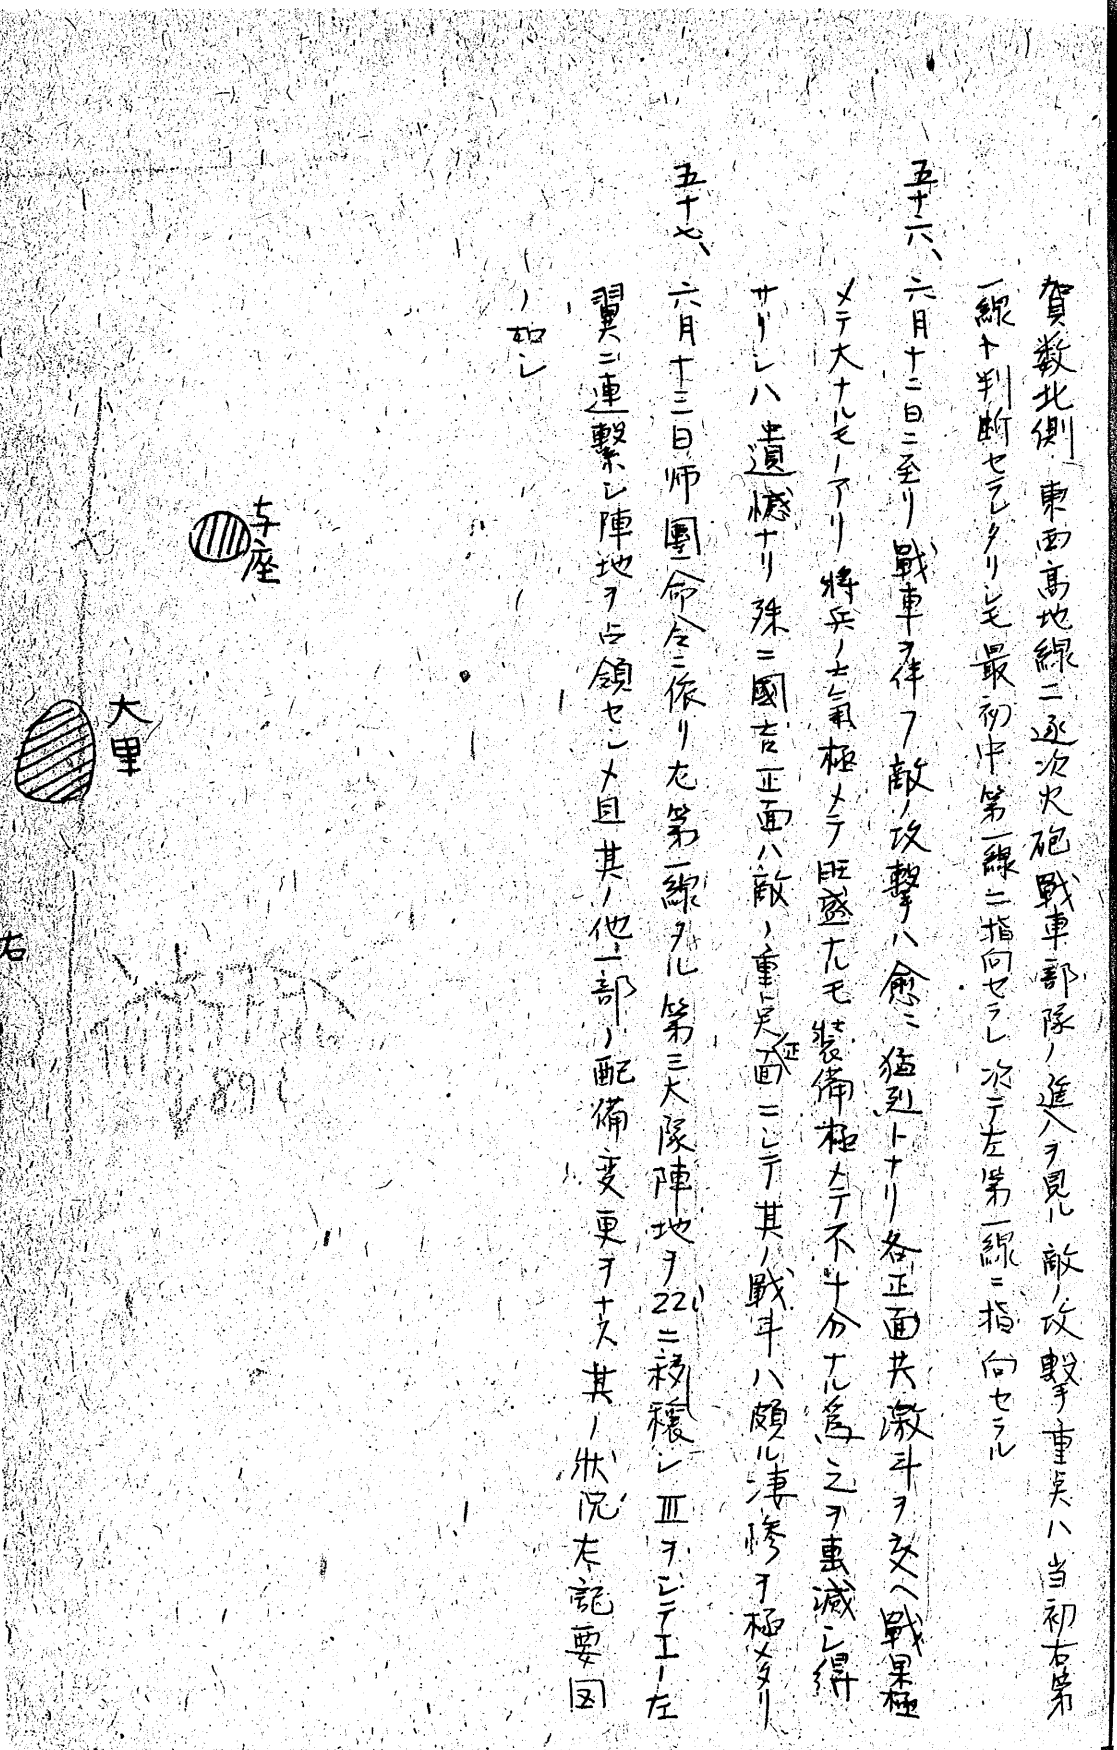 賀数北側、東西高地線ニ逐次火砲戰車部隊ノ進入ヲ見ル敵ノ攻撃重点ハ当初右第
一線ト判断セラレタリシモ最初中第一線ニ指向セラレ次テ左第一線ニ指向セラル
五十六、六月十二日ニ至リ戰車ヲ伴フ敵ノ攻撃ハ愈ニ猛烈トナリ各正面共激斗ヲ交ヘ戰果極
メテ大ナルモノアリ將兵ノ士氣極メテ旺盛ナルモ裝備極メテ不十分ナル為之ヲ撃滅シ得
サリシハ遺憾ナリ殊ニ國吉正面ハ敵ノ重点正面ニシテ其ノ戰斗ハ頗ル凄惨ヲ極メタリ
五十七、六月十三日師團命令ニ依リ左第一線タル第三大隊陣地ヲ22iニ移穣シⅢヲシテⅠノ左
翼ニ連繋シ陣地ヲ占領セシメ且其ノ他一部ノ配備変更ヲナス其ノ状況左記要図
ノ如シ
与座
大里
右
89i